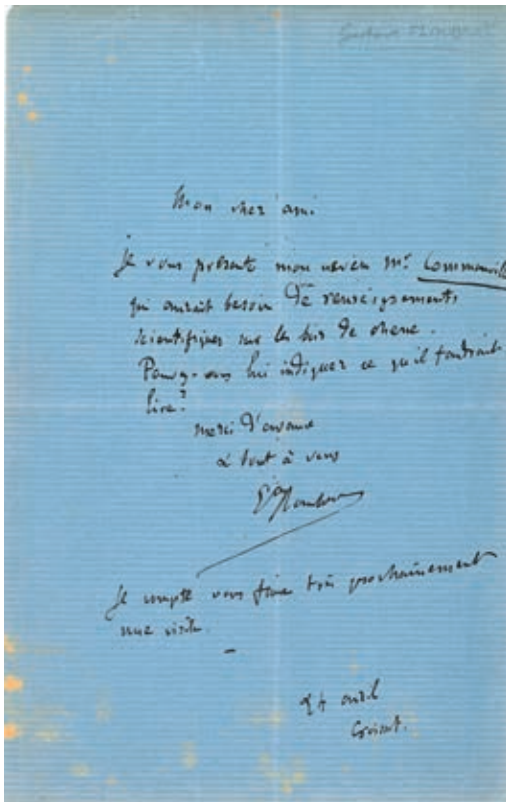 Gustave Flaubert
Mon cher ami
Je vous présente mon neveu Mr Commanville
qui aurait besoin de renseignements
scientifiques sur les bois de chêne.
Pouvez-vous lui indiquer ce qu'il faudrait
lire?
merci d'avance
& tout à vous
Gve Flaubert
Je compte vous faire très prochainement
une visite.
24 avril
Croisset.